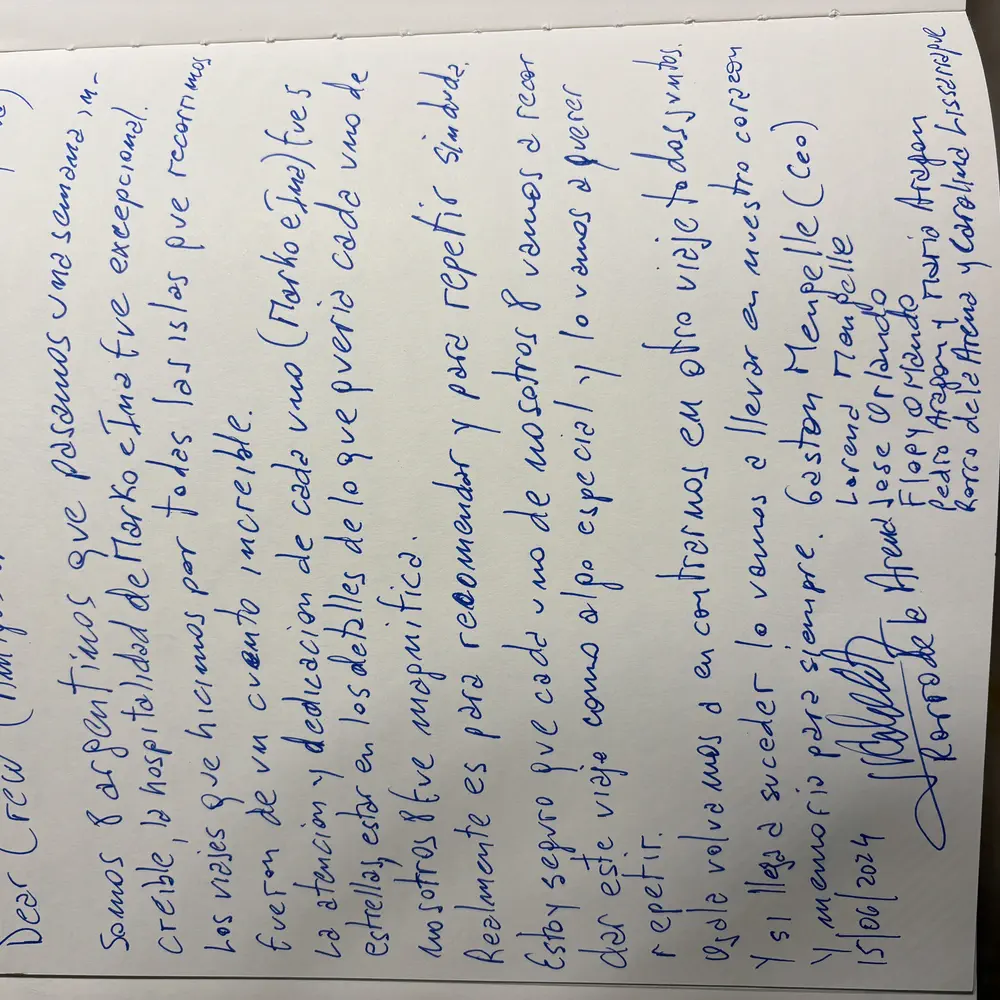 Dear Crew
Somos 8 argentinos que pasamos una semana in-
creible, la hospitalidad de Marko e Ina fve excepcional.
Los viajes que hicimos por todas las islas que recorrimos
fueron de vn cuento increible.
La atencion y dedicacion de cada vno (Marko e Ina) fve 5
estrellas, estar en los detalles de lo que queria cada vno de
nosotros 8 fve magnifica.
Realmente es para recomendar y para repetir sin duda.
Estoy seguro que cada vno de nosotros 8 vamos a recor
dar este viaje como algo especial y lo vamos a querer
repetir.
Ojala volvamos a encontrarnos en otro viaje todos juntos.
Y si llega a suceder lo vamos a llevar en nuestro corazon
y memoria para siempre. Gaston Mengelle (Ceo)
Lorena Mengelle
15/06/2024
Jose Orlando
Flopy Ormando
Rorro de la Arena
Pedro Aragon y Maria Aragon
Rorro de la Arena y Carolina Lissarrague